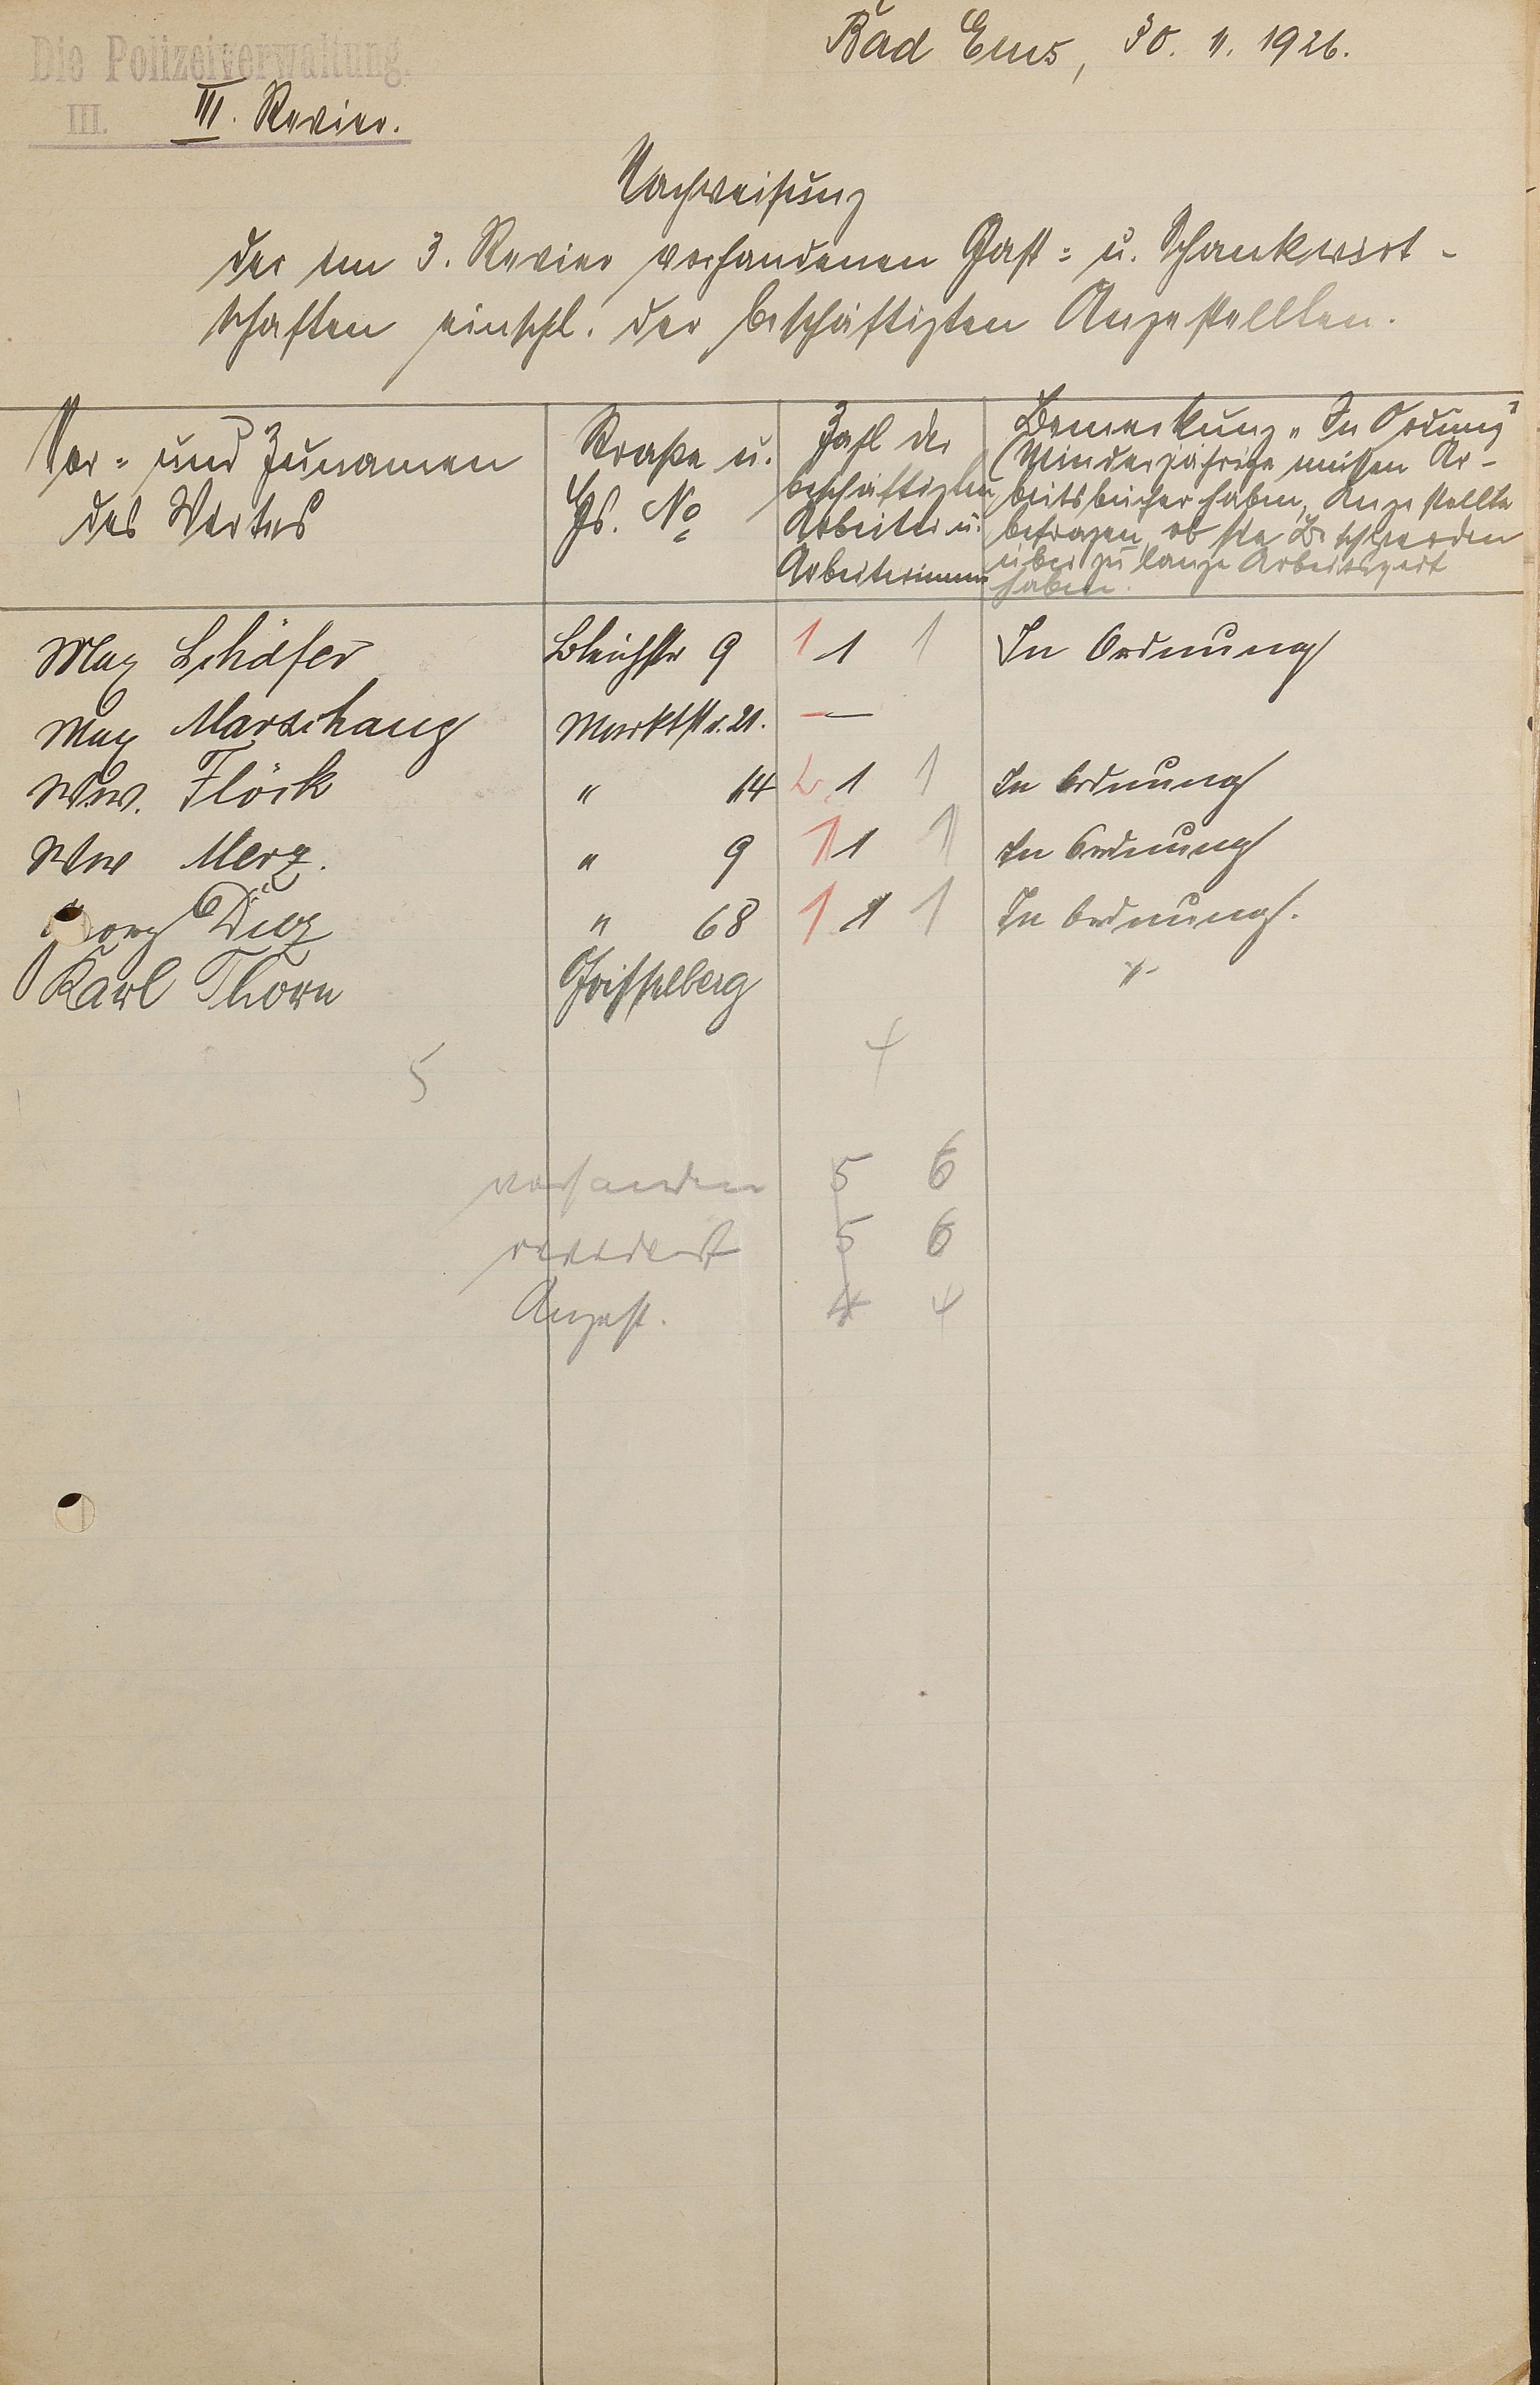 Die Polizeiverwaltung.
Bad Ems, 30. 11. 1926.
III. III. Revier.
Nachweisung
der im 3. Revier vorhandenen Gast= u. Schankwirt-
schaften einschl. der beschäftigten Angestellten.
Vor= und Zunamen
des Wirtes
Straße u.
Hs. No
Zahl der
beschäftigten
Arbeiter u.
Arbeiterinnen
Bemerkung „In Ordnung"
(Minderjährige müssen Ar-
beitsbücher haben, Angestellte
befragen, ob sie Beschwerden
über zu lange Arbeitszeit
haben.
Max Schäfer Bleichstr 9 1 1 1 In Ordnung
Max Marschang Marktstr. 21. — —
Ww. Flöck " 14 2 1 1 In Ordnung
Ww Merz. " 9 1 1 1 In Ordnung
Georg Diez " 68 1 1 1 In Ordnung.
Karl Thorn Grisselberg
5 4
vorhanden 5 6
revidiert 5 6
Angest. 4 4